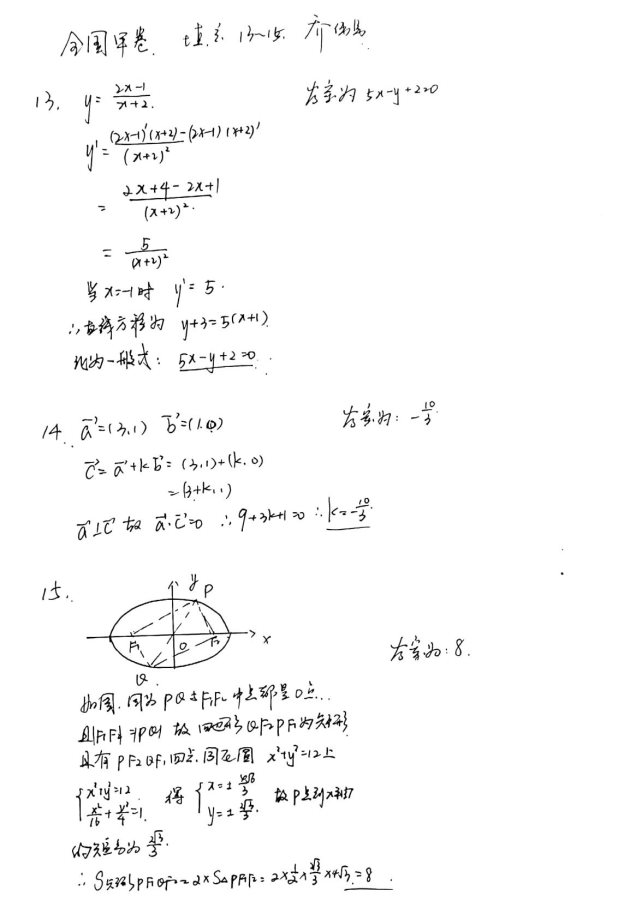 全国甲卷 填空 13~15.
13. y = \frac{2x-1}{x+2}. 答案为 5x-y+2=0
y' = \frac{(2x-1)'(x+2)-(2x-1)(x+2)'}{(x+2)^2}
= \frac{2x+4-2x+1}{(x+2)^2}.
= \frac{5}{(x+2)^2}
当 x=-1时 y'=5.
∴直线方程为 y+3=5(x+1)
化为一般式: 5x-y+2=0.
14. \vec{a}=(3,1) \vec{b}=(1,0) 答案为: -\frac{10}{3}
\vec{c}=\vec{a}+k\vec{b}=(3,1)+(k,0)
=(3+k,1)
\vec{a}⊥\vec{c} 故 \vec{a}·\vec{c}=0 ∴9+3k+1=0 ∴k=-\frac{10}{3}
15.
y P
F₁ O F₂ x
Q
答案为: 8.
如图. 因为 PQ与F₁F₂ 中点都是O点...
且|F₁F₂|=|PQ| 故 四边形QF₂PF₁为矩形
且有 PF₂QF₁四点同在圆 x²+y²=12上
{x²+y²=12 \frac{x²}{16}+\frac{y²}{4}=1. 得 {x=±\frac{4\sqrt{6}}{3} y=±\frac{2\sqrt{3}}{3}. 故P点到x轴
的距离为 \frac{2\sqrt{3}}{3}.
∴S矩形PF₁QF₂=2×S△PF₁F₂=2×\frac{1}{2}×\frac{2\sqrt{3}}{3}×4\sqrt{3}=8